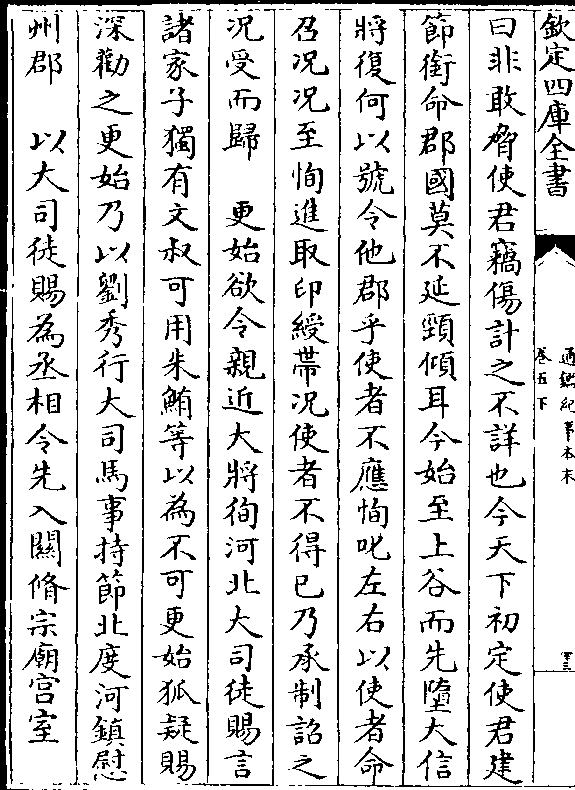 欽定四庫全書
通鑑紀事本末
卷五下
曰非敢脅使君竊傷計之不詳也今天下初定使君建
節銜命郡國莫不延頸傾耳今始至上谷而先墮大信
將復何以號令他郡乎使者不應恂叱左右以使者命
召况况至恂進取印綬帶况使者不得已乃承制詔之
况受而歸　更始欲令親近大將徇河北大司徒賜言
諸家子獨有文叔可用朱鮪等以為不可更始狐疑賜
深勸之更始乃以劉秀行大司馬事持節北度河鎮慰
州郡　以大司徒賜為丞相令先入關脩宗廟宫室